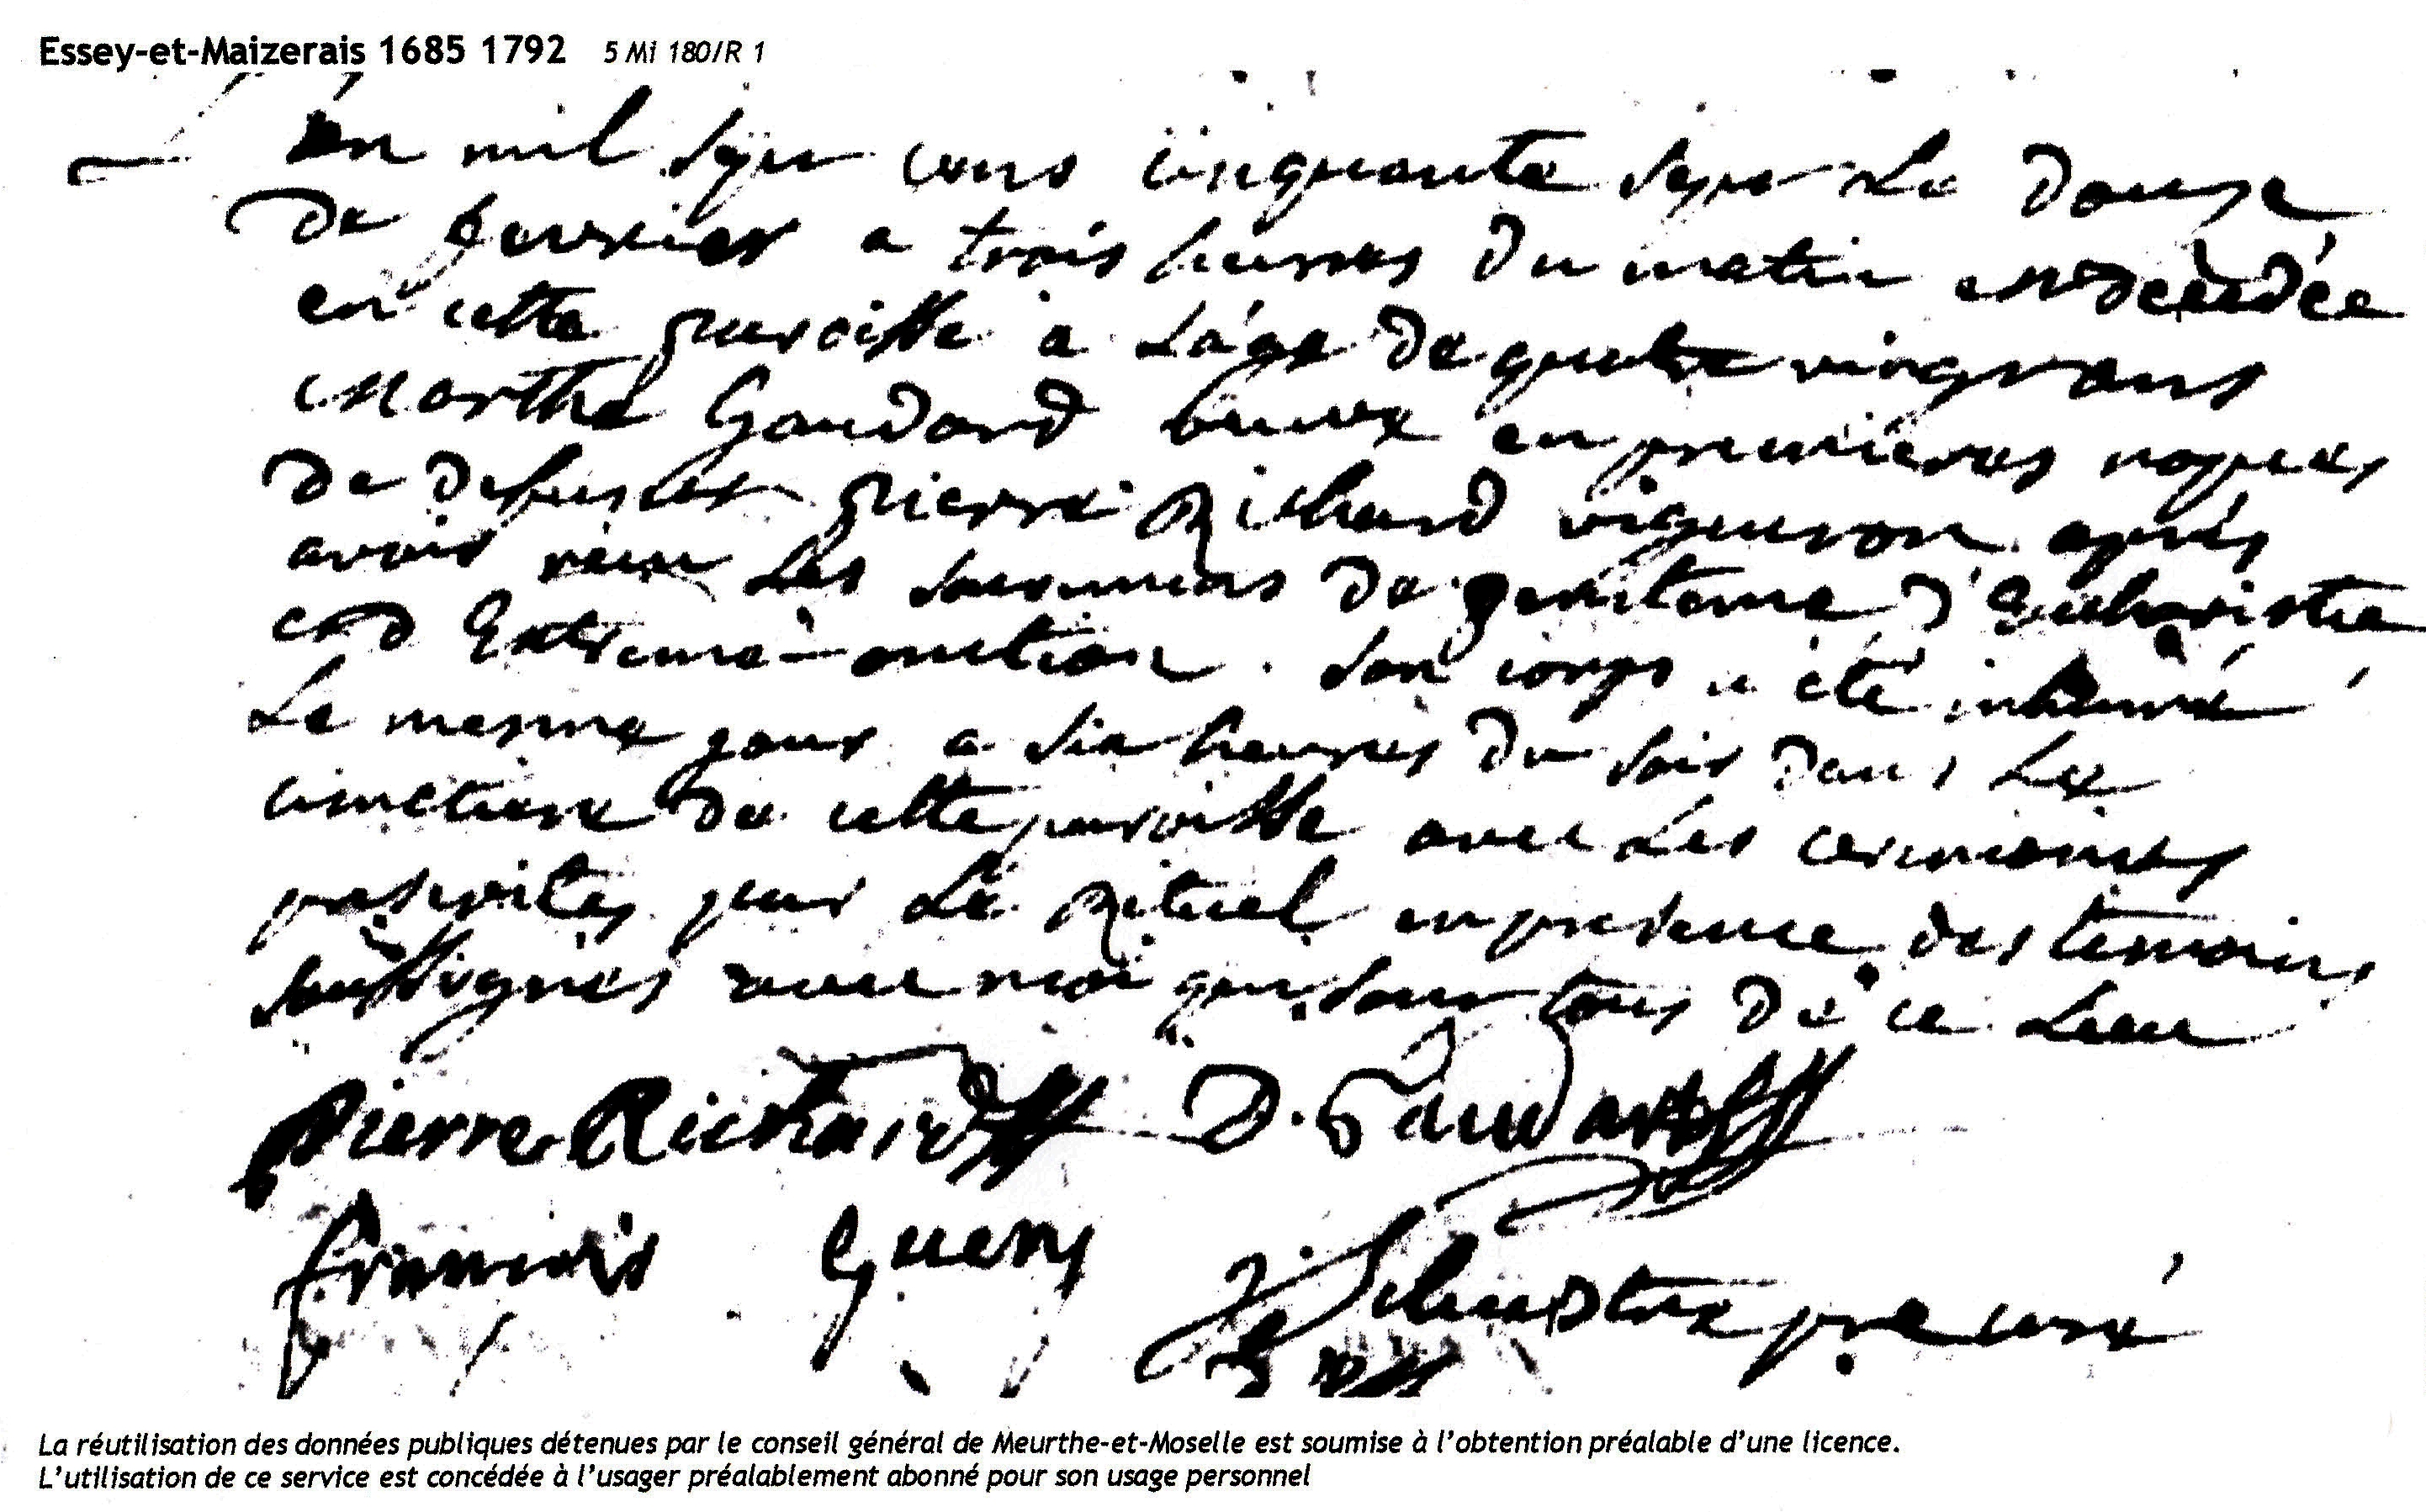 Essey-et-Maizerais 1685 1792 5 Mi 180/R 1
En mil sept cens cinquante sept le douze
de fevrier a trois heures du matin est decedée
en cette paroisse a l'age de quatre vingt ans
Marthe Gaudard veuve en premieres nopces
de defunt Pierre Richard vigneron après
avoir reçu les sacremens de penitence d'Eucharistie
et d'Extreme-onction. Son corps a été inhumé
le mesme jour a six heures du soir dans le
cimetiere de cette paroisse avec les ceremonies
prescrites par le Rituel en presence des temoins
soussignés avec moi qui sont tous de ce lieu
Pierre Richard D. Gaudard
francois Guery
pre curé
La réutilisation des données publiques détenues par le conseil général de Meurthe-et-Moselle est soumise à l'obtention préalable d'une licence.
L'utilisation de ce service est concédée à l'usager préalablement abonné pour son usage personnel